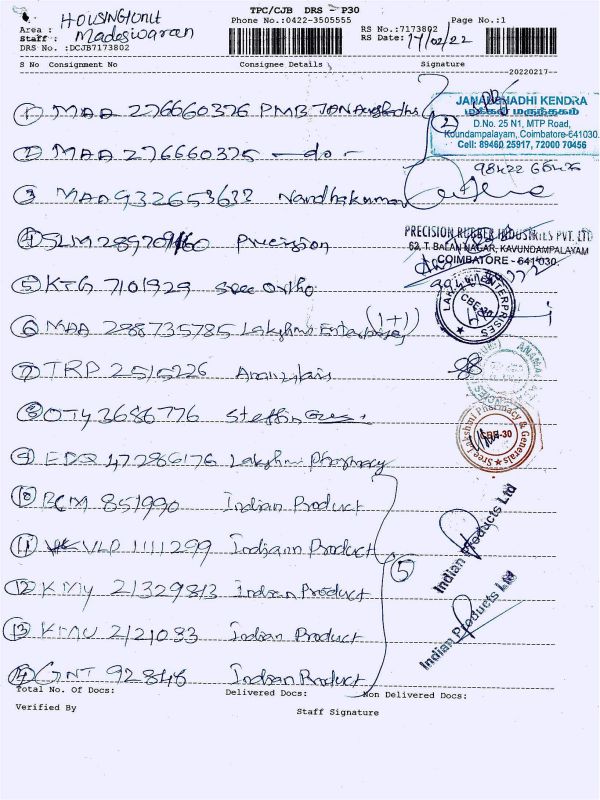 TPC/CJB DRS - P30
HOUSINGUNIT
Phone No.:0422-3505555
Page No.:1
Area :
Staff : Madeswaran
RS No.:7173802
RS Date: 17/02/22
DRS No. :DCJB7173802
S No Consignment No Consignee Details Signature
20220217
1 MAA 276660376 PMB JAN Aushadhi
JANAUSHADHI KENDRA
மக்கள் மருந்தகம்
D.No. 25 N1, MTP Road,
Koundampalayam, Coimbatore-641030.
Cell: 89460 25917, 72000 70456
2
2 MAA 276660375 - do -
3 MAA 932653633 Nandhakumar
PRECISION RUBBER INDUSTRIES PVT. LTD
63, T. BALAN NAGAR, KAVUNDAMPALAYAM
COIMBATORE - 641 030.
4 SLM 289709160 Precision
5 KTG 7101929 Sree Ortho
LAKSHMI ENTERPRISES
CBE-30
6 MAA 288735785 Lakshmi Enterprises (1+1)
7 TRP 2515226
8 OTY 3686776
Sree Lakshmi Pharmacy & Generals
CBE-30
9 EDQ 47286176 Lakshmi Pharmacy
10 BCM 851990 Indian Product
11 VLP 1111299 Indian Product
5
Indian Products Ltd
12 KMY 21329813 Indian Product
13 KMU 2121083 Indian Product
Indian Products Ltd
14 GNT 92846 Indian Product
Total No. Of Docs: Delivered Docs: Non Delivered Docs:
Verified By Staff Signature